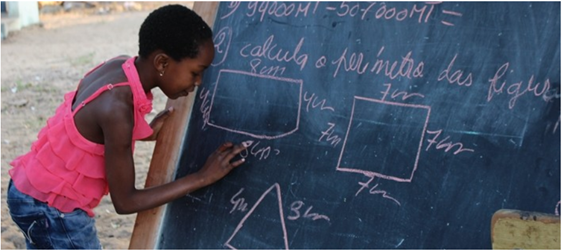 1) 94000MT-507000MT =
2) calcula o perímetro das figur
8cm
4cm
4cm
8cm
7cm
7cm
7cm
7cm
4m
3cm